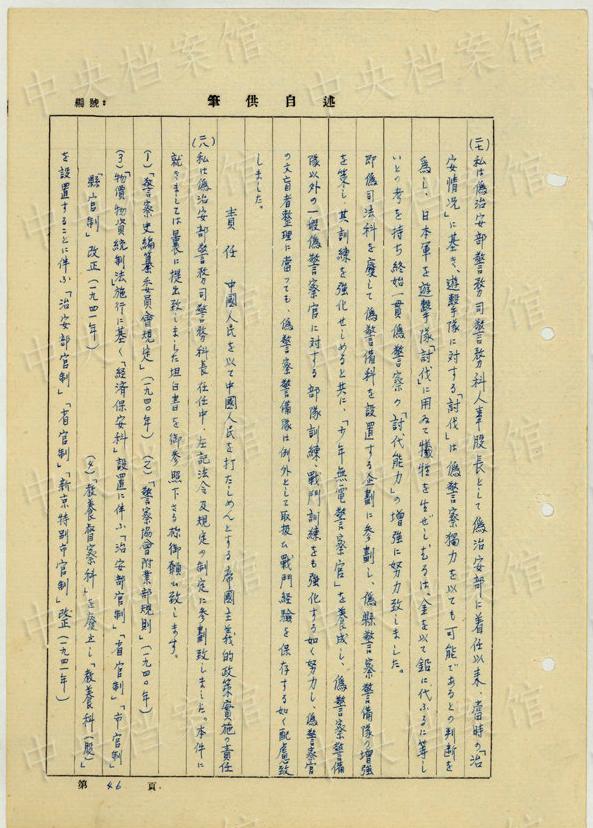 編號：
述自供筆
(二七)私は偽治安部警務司警務科人事股長として偽治安部に着任以来、當時の「治
安情况」に基き、遊撃隊に対する「討伐」は偽警察獨力を以ても可能であるとの判断を
為し、日本軍を遊撃隊「討伐」に用ゐて犠牲を生ぜしむるは、金を以て鉛に代ふるに等し
いとの考を持ち終始一貫偽警察の「討伐能力」の增強に努力致しました。
即偽司法科を廢して偽警備科を設置する企劃に参劃し、偽縣警察警備隊の增強
を策し、其訓練を強化せしめると共に、「少年無電警察官」を養成し、偽警察警備
隊以外の一般偽警察官に対する部隊訓練、戰鬥訓練をも強化する如く努力し、偽警察官
の文盲者整理に當っても、偽警察警備隊は例外として取扱ひ戰鬥経驗を保存する如く配慮致
しました。
責任　中國人民を以て中國人民を打たしめんとする帝國主義的政策實施の責任
(二八)私は偽治安部警務司警務科長在任中、左記法令及規定の制定に参劃致しました。本件に
就きましては曩に提出致しました坦白書を御参照下さる様御願ひ致します。
(1)「警察史編纂委員會規定」(一九四〇年)　(2)「警察協會附業部規則」(一九四〇年)
(3)「物價物資統制法」施行に基く「経済保安科」設置に伴ふ「治安部官制」「省官制」「市官制」
「縣官制」改正(一九四一年)　(4)「教養督察科」を廢止し「教養科(股)」
を設置することに伴ふ「治安部官制」「省官制」「新京特別市官制」改正(一九四一年)
第 46 頁
中央档案馆